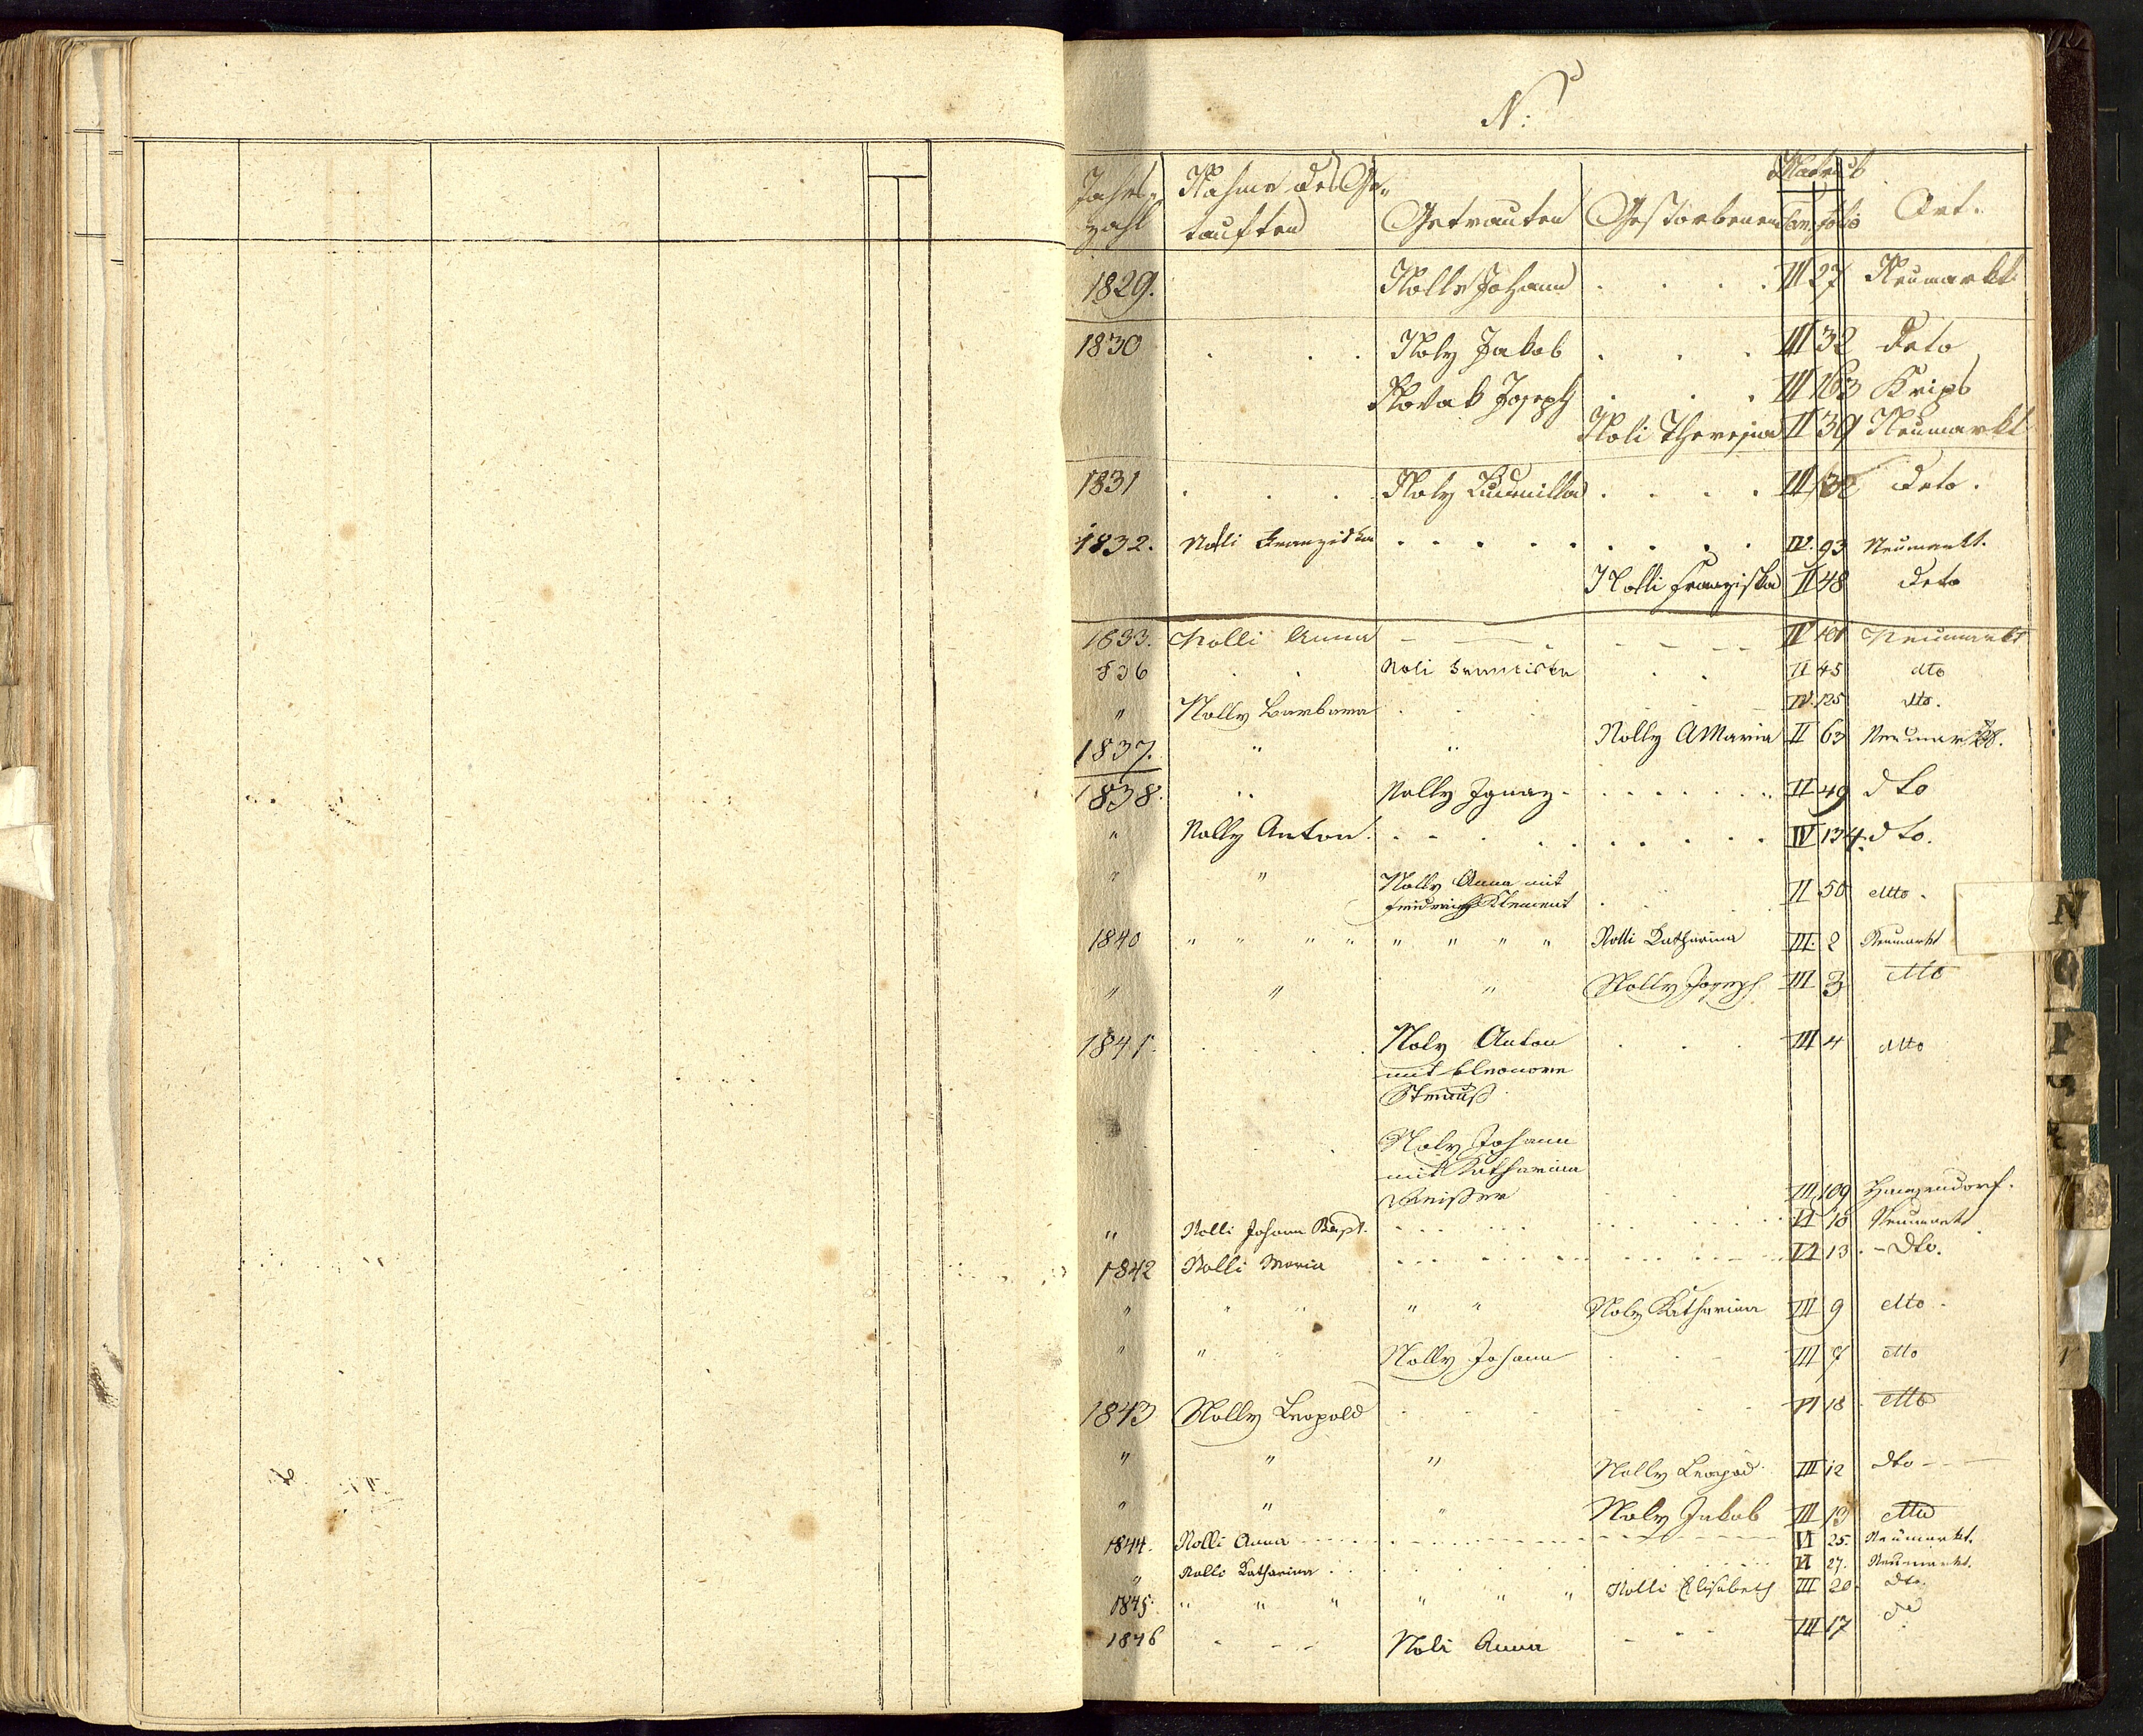 N:
Jahrs-zahl Nahme der Ge-tauften Getrauten Gestorbenen Matrick Tom. folio Ort.
1829. Nolly Johann III 27 Neumarkt
1830 Noly Jakob III 32 deto
Novak Joseph III 163 Krips
Noli Theresia II 39 Neumarkt
1831 Noly Ludmilla III 32 deto.
1832. Nolli Franziska IV. 93 Neumarkt.
Nolli Franziska II 48 deto
1833. Nolli Anna IV 101 Neumarkt
836 Noli Franciska II 45 dto
" Nolly Barbara IV. 125 dto.
1837. " " Nolly AMaria II 63 Neumarkt.
1838. " Nolly Ignaz II 49 dto
" Nolly Anton. IV 134. dto.
" " Nolly Anna mit
Friedrich Klement II 50 dtto.
1840 " " " " " " " " Nolli Katharina III. 2 Neumarkt
" " " Nolly Joseph III 3 dtto
1841. Noly Anton III 4 dtto
mit Eleonore
Strauß
Noly Johann
mit Katharina
III 109 Hangendorf.
" Nolli Johann Bapt. VI 10 Neumarkt
1842 Nolli Maria VI 13 dto.
" " " " " Noly Katharina III 9 dto.
" " " Nolly Johann III 7 dtto
1843 Nolly Leopold VI 18 dtto
" " " Nolly Leopod III 12 dto
" " " Noly Jakob III 13 dtto
1844. Nolli Anna VI 25. Neumarkt.
" Nolli Katharina VI 27. Neumarkt.
1845. " " " " " " Nolli Elisabeth III 20 dto.
1846 Noli Anna III 17 do
N
O
P